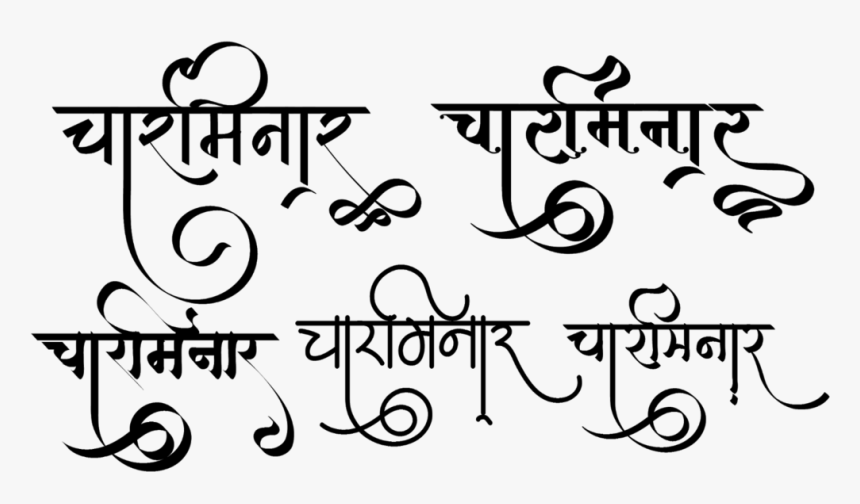 चारमिनार चारमिनार
चारमिनार चारमिनार चारमिनार